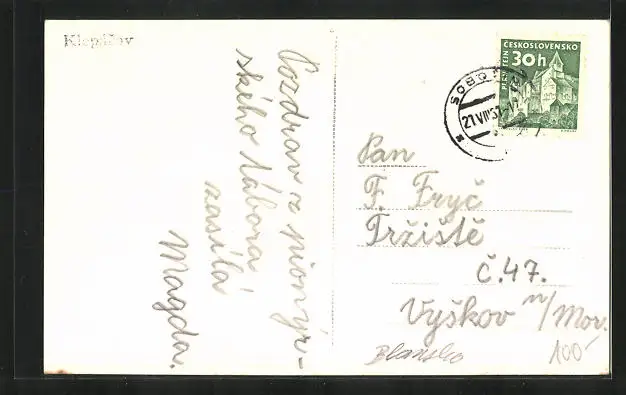 Klepáčov
Pozdrav z pionýr-
ského tábora
zasílá
Magda.
ČESKOSLOVENSKO
30h
27.VII.
Pan
F. Fryč
Tržiště
č. 47.
Vyškov n/Mor.
Blansko
100-